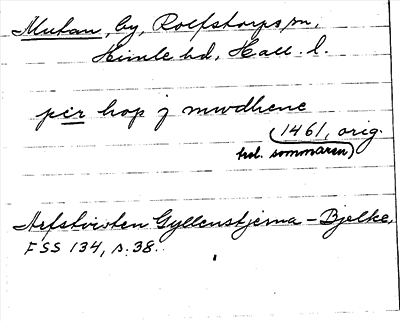 Mutan, by, Rolfstorps sn,
Himle hd, Hall. l.
pær hop j mwdhene
(1461, orig.
trol. sommaren)
Arfstvisten Gyllenstjerna - Bjelke,
FSS 134, s. 38.